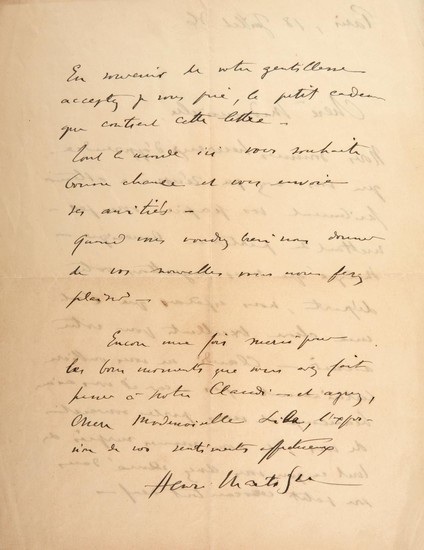 En souvenir de votre gentillesse
acceptez je vous prie, le petit cadeau
que contient cette lettre –
Tout le monde ici vous souhaite
bonne chance et vous envoie
ses amitiés –
Quand vous voudrez bien nous donner
de vos nouvelles vous nous ferez
plaisir –
Encore une fois merci pour
les bons moments que vous avez fait
passer à notre Claude – et agréez,
Chère Mademoiselle, l'expres-
sion de vos sentiments affectueux
Henri Matisse